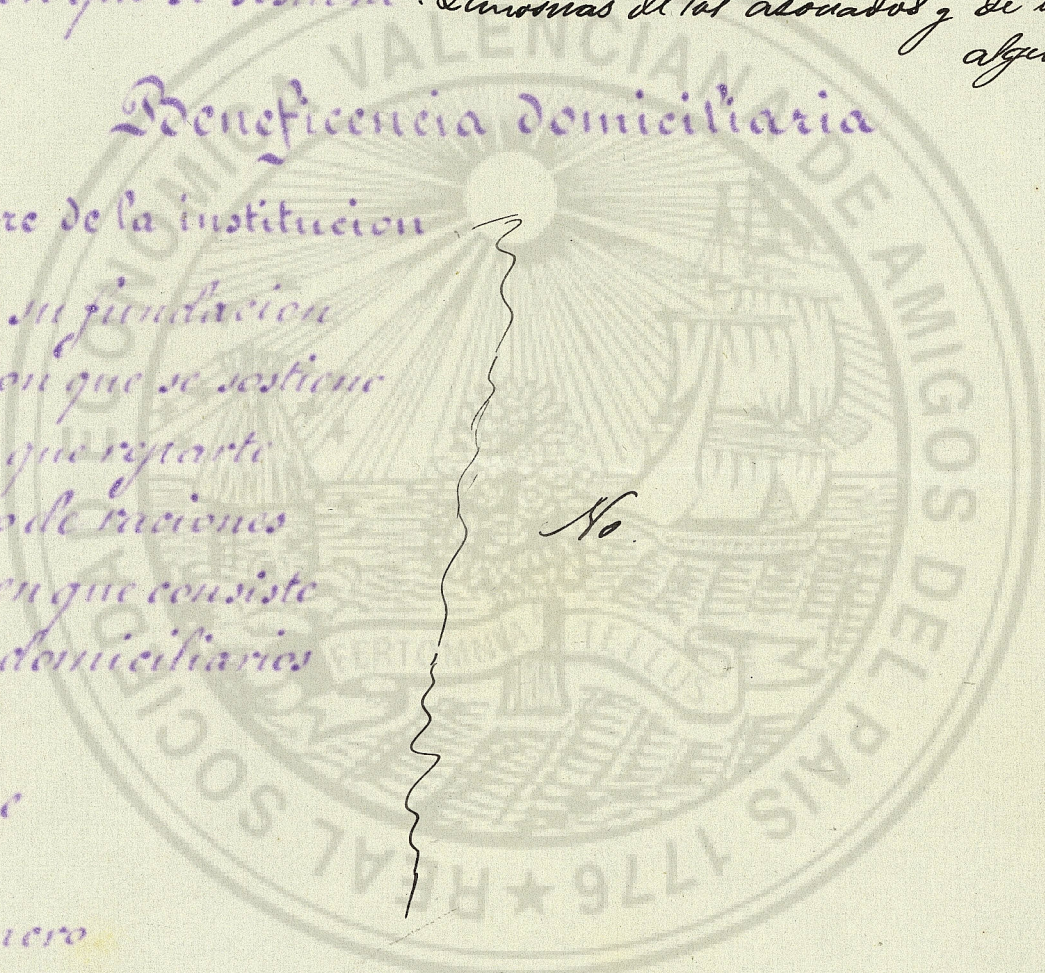 on que se sostiene . Limosnas de los asociados y de
algu
Beneficencia domiciliaria
re de la institucion
su fundacion
on que se sostiene
que reparte
o de raciones
No.
en que consiste
domiciliarios
e
nero
REAL SOCIEDAD ECONOMICA VALENCIANA DE AMIGOS DEL PAIS 1776